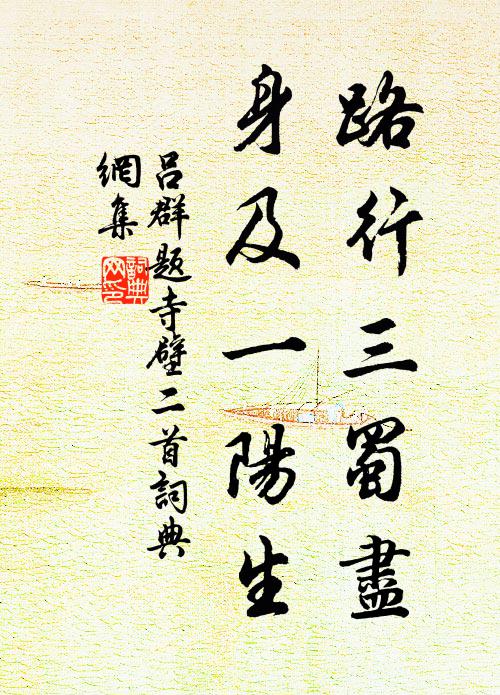 路行三蜀盡
身及一陽生
呂群題寺壁二首詞典
網集
詞典網印